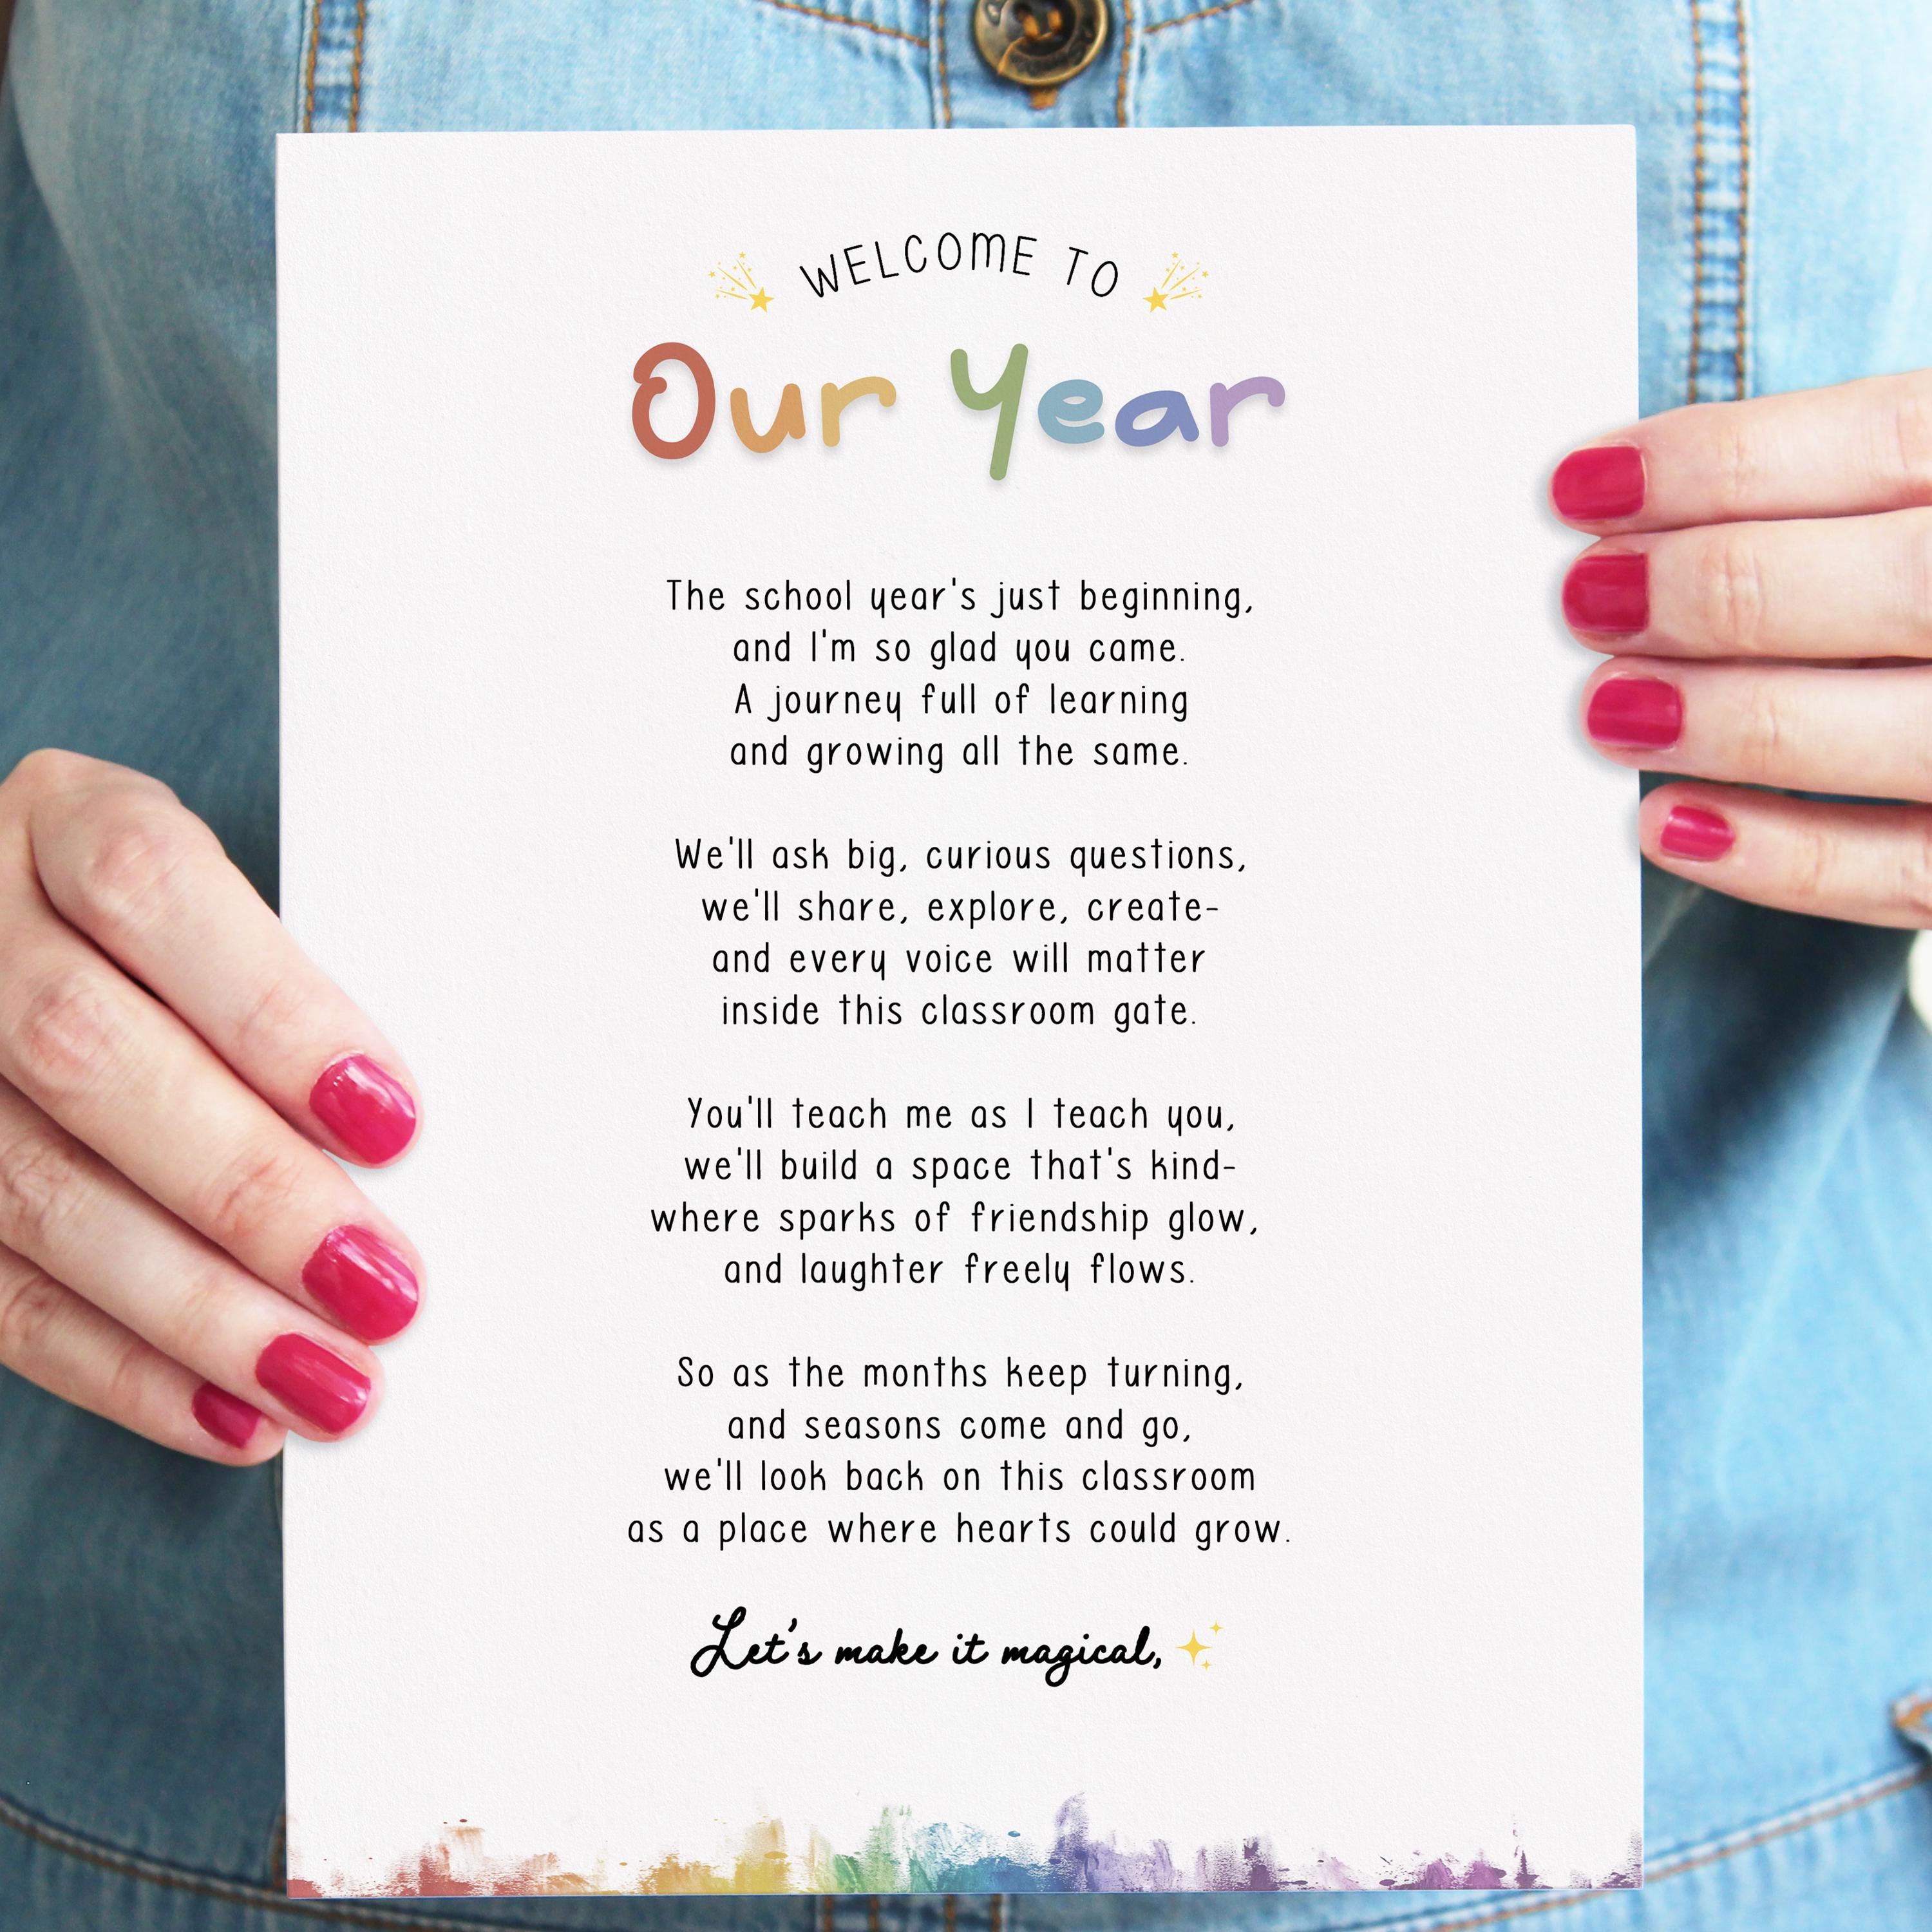 WELCOME TO
Our Year
The school year's just beginning,
and I'm so glad you came.
A journey full of learning
and growing all the same.
We'll ask big, curious questions,
we'll share, explore, create-
and every voice will matter
inside this classroom gate.
You'll teach me as I teach you,
we'll build a space that's kind-
where sparks of friendship glow,
and laughter freely flows.
So as the months keep turning,
and seasons come and go,
we'll look back on this classroom
as a place where hearts could grow.
Let's make it magical,